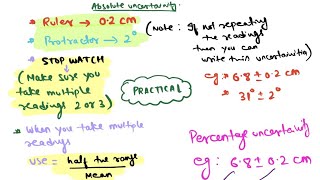 Absolute uncertainty
Ruler → 0.2 cm
Protractor → 2°
STOP WATCH
(Make sure you
take multiple
readings 2 or 3)
When you take multiple
readings
use = half the range
Mean
PRACTICAL
(Note: If not repeating
the readings
then you can
write this uncertainties
eg: 6.8 ± 0.2 cm
31° ± 2°
Percentage uncertainty
eg: 6.8 ± 0.2 cm